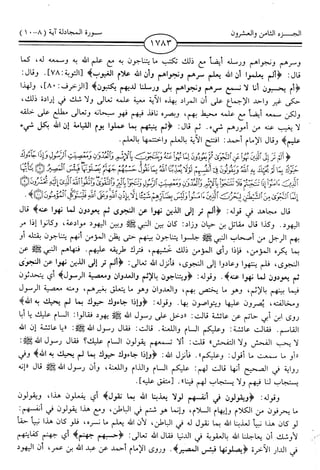 الجزء الثامن والعشرون
١٧٨٣
سورة المجادلة آية (٨-١٠)
وسرهم ونجواهم ورسله أيضاً مع ذلك تكتب ما يتناجون به مع علم الله به وسمعه له، كما
قال: ﴿ألم يعلموا أن الله يعلم سرهم ونجواهم وأن الله علام الغيوب﴾ [التوبة:٧٨]. وقال:
﴿أم يحسبون أنا لا نسمع سرهم ونجواهم بلى ورسلنا لديهم يكتبون﴾ [الزخرف:٨٠]، ولهذا
حكى غير واحد الإجماع على أن المراد بهذه الآية معية علمه تعالى ولا شك في إرادة ذلك،
ولكن سمعه أيضاً مع علمه محيط بهم، وبصره نافذ فيهم فهو سبحانه وتعالى مطلع على خلقه
لا يغيب عنه من أمورهم شيء. ثم قال: ﴿ثم ينبئهم بما عملوا يوم القيامة إن الله بكل شيء
عليم﴾ وقال الإمام أحمد: افتتح الآية بالعلم واختتمها بالعلم.
قال مجاهد في قوله: ﴿ألم تر إلى الذين نهوا عن النجوى ثم يعودون لما نهوا عنه﴾ قال
اليهود. وكذا قال مقاتل بن حيان وزاد: كان بين النبي ﷺ وبين اليهود موادعة، وكانوا إذا مر
بهم الرجل من أصحاب النبي ﷺ جلسوا يتناجون بينهم حتى يظن المؤمن أنهم يتناجون بقتله أو
بما يكره المؤمن، فإذا رأى المؤمن ذلك خشيهم، فترك طريقه عليهم. فنهاهم النبي ﷺ عن
النجوى، فلم ينتهوا وعادوا إلى النجوى، فأنزل الله تعالى: ﴿ألم تر إلى الذين نهوا عن النجوى
ثم يعودون لما نهوا عنه﴾. وقوله: ﴿ويتناجون بالإثم والعدوان ومعصية الرسول﴾ أي يتحدثون
فيما بينهم بالإثم، وهو ما يختص بهم، والعدوان وهو ما يتعلق بغيرهم، ومنه معصية الرسول
ومخالفته، يُصرون عليها ويتواصون بها. وقوله: ﴿وإذا جاءوك حيوك بما لم يحيك به الله﴾
روى ابن أبي حاتم عن عائشة قالت: «دخل على رسول الله ﷺ يهود فقالوا: السام عليك يا أبا
القاسم. فقالت عائشة: وعليكم السام واللعنة. قالت: فقال رسول الله ﷺ: «يا عائشة إن الله
لا يحب الفحش ولا التفحش» قلت: ألا تسمعهم يقولون السام عليك؟ فقال رسول الله ﷺ:
«أو ما سمعت ما أقول: وعليكم». فأنزل الله: ﴿وإذا جاءوك حيوك بما لم يحيك به الله﴾ وفي
رواية في الصحيح أنها قالت لهم: عليكم السام والذام واللعنة، وأن رسول الله ﷺ قال «إنه
يستجاب لنا فيهم ولا يستجاب لهم فينا». [متفق عليه].
وقوله: ﴿ويقولون في أنفسهم لولا يعذبنا الله بما نقول﴾ أي يفعلون هذا، ويقولون
ما يحرفون من الكلام وإيهام السلام، وإنما هو شتم في الباطن، ومع هذا يقولون في أنفسهم:
لو كان هذا نبياً لعذبنا الله بما نقول له في الباطن، لأن الله يعلم ما نسره، فلو كان هذا نبياً حقاً
لأوشك أن يعاجلنا الله بالعقوبة في الدنيا فقال الله تعالى: ﴿حسبهم جهنم﴾ أي جهنم كفايتهم
في الدار الآخرة ﴿يصلونها فبئس المصير﴾. وروى الإمام أحمد عن عبد الله بن عمرو، أن اليهود